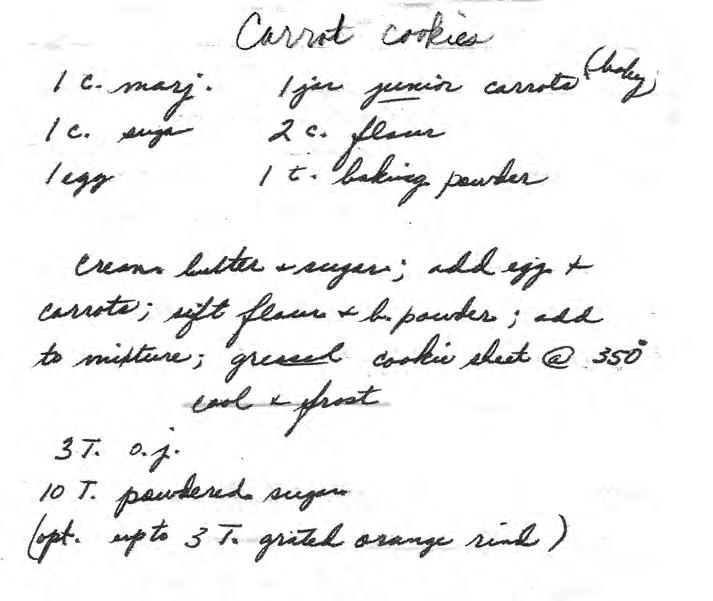 Carrot cookies
1 c. marj. 1 jar junior carrots (baby)
1 c. sugar 2 c. flour
1 egg 1 t. baking powder
cream butter + sugar; add egg +
carrots; sift flour + b. powder; add
to mixture; greased cookie sheet @ 350°
cool & frost
3 T. o.j.
10 T. powdered sugar
(opt. up to 3 T. grated orange rind)